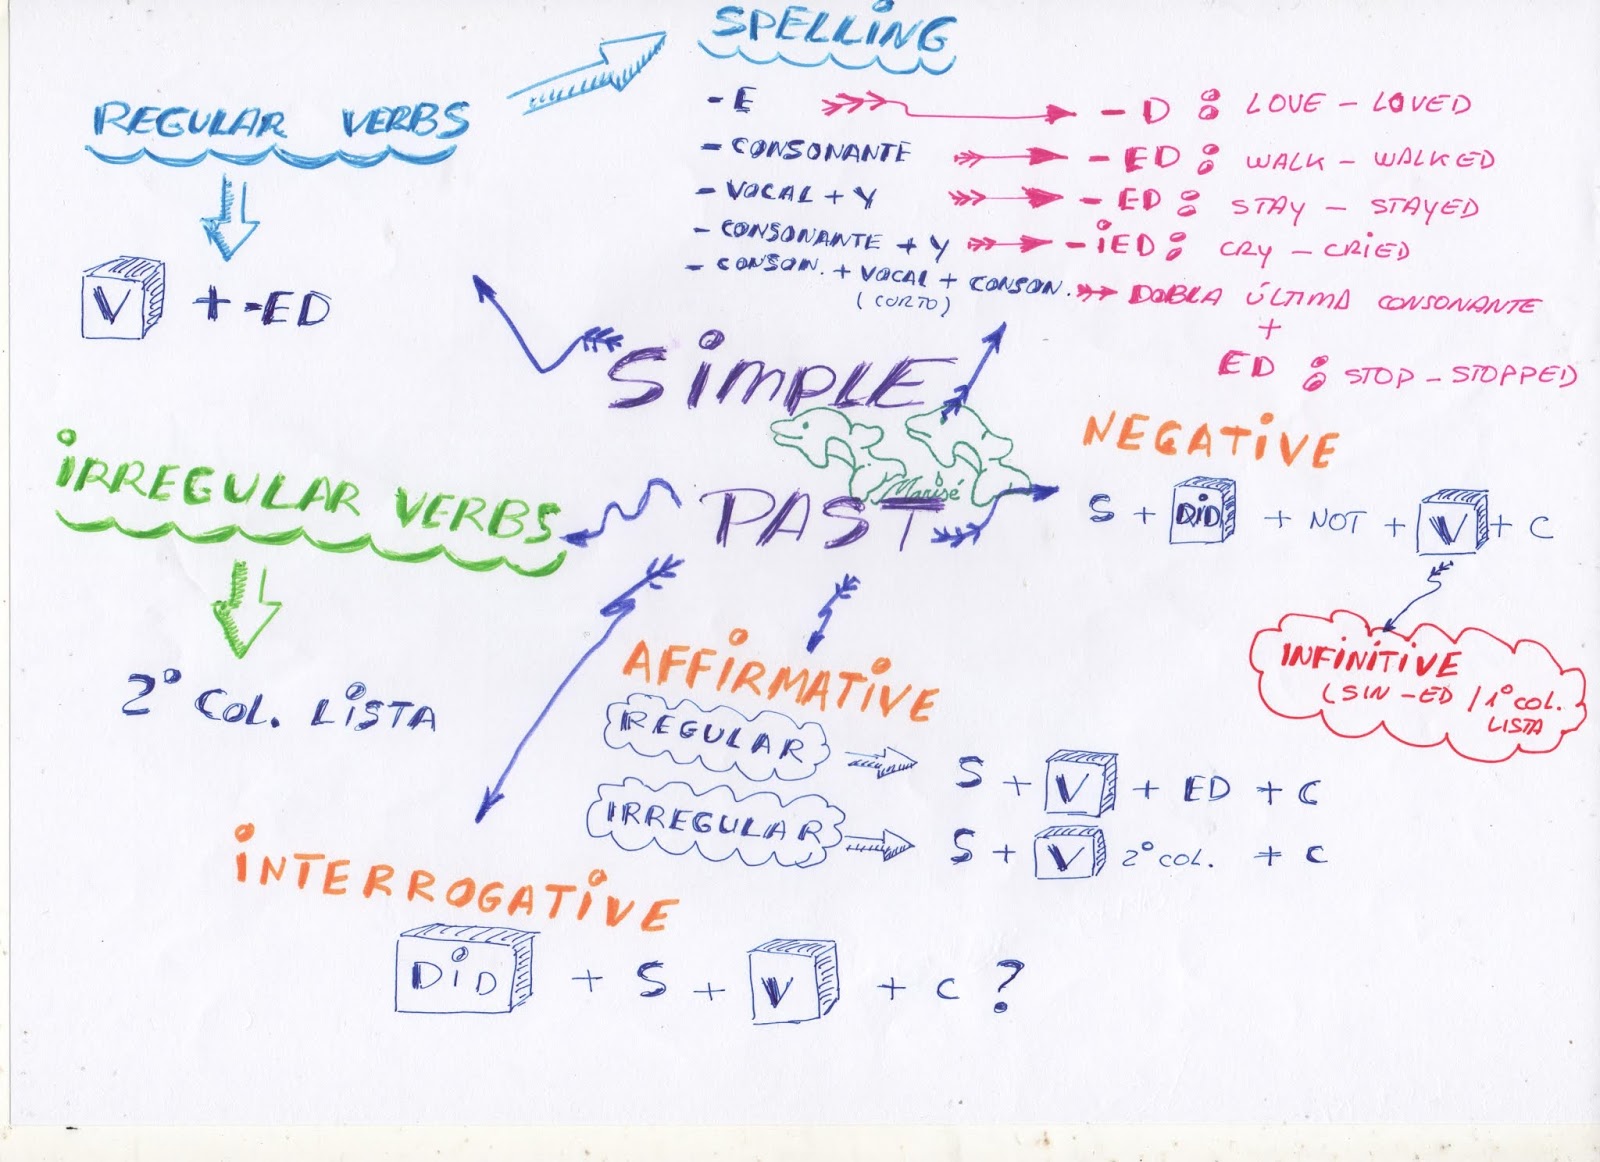 SPELLING
- E - D : LOVE - LOVED
- CONSONANTE - ED : WALK - WALKED
- VOCAL + Y - ED : STAY - STAYED
- CONSONANTE + Y - iED : CRY - CRiED
- CONSON. + VOCAL + CONSON. DOBLA ÚLTIMA CONSONANTE
(CORTO)
+
ED : STOP - STOPPED
REGULAR VERBS
V + -ED
SiMPLE
PAST
Marisé
IRREGULAR VERBS
2º COL. LiSTA
NEGATiVE
S + DiD + NOT + V + C
INFINITIVE
(SIN -ED / 1º COL.
LISTA
AFFiRMATiVE
REGULAR S + V + ED + C
IRREGULAR S + V 2º COL. + C
iNTERROGATiVE
DiD + S + V + C ?